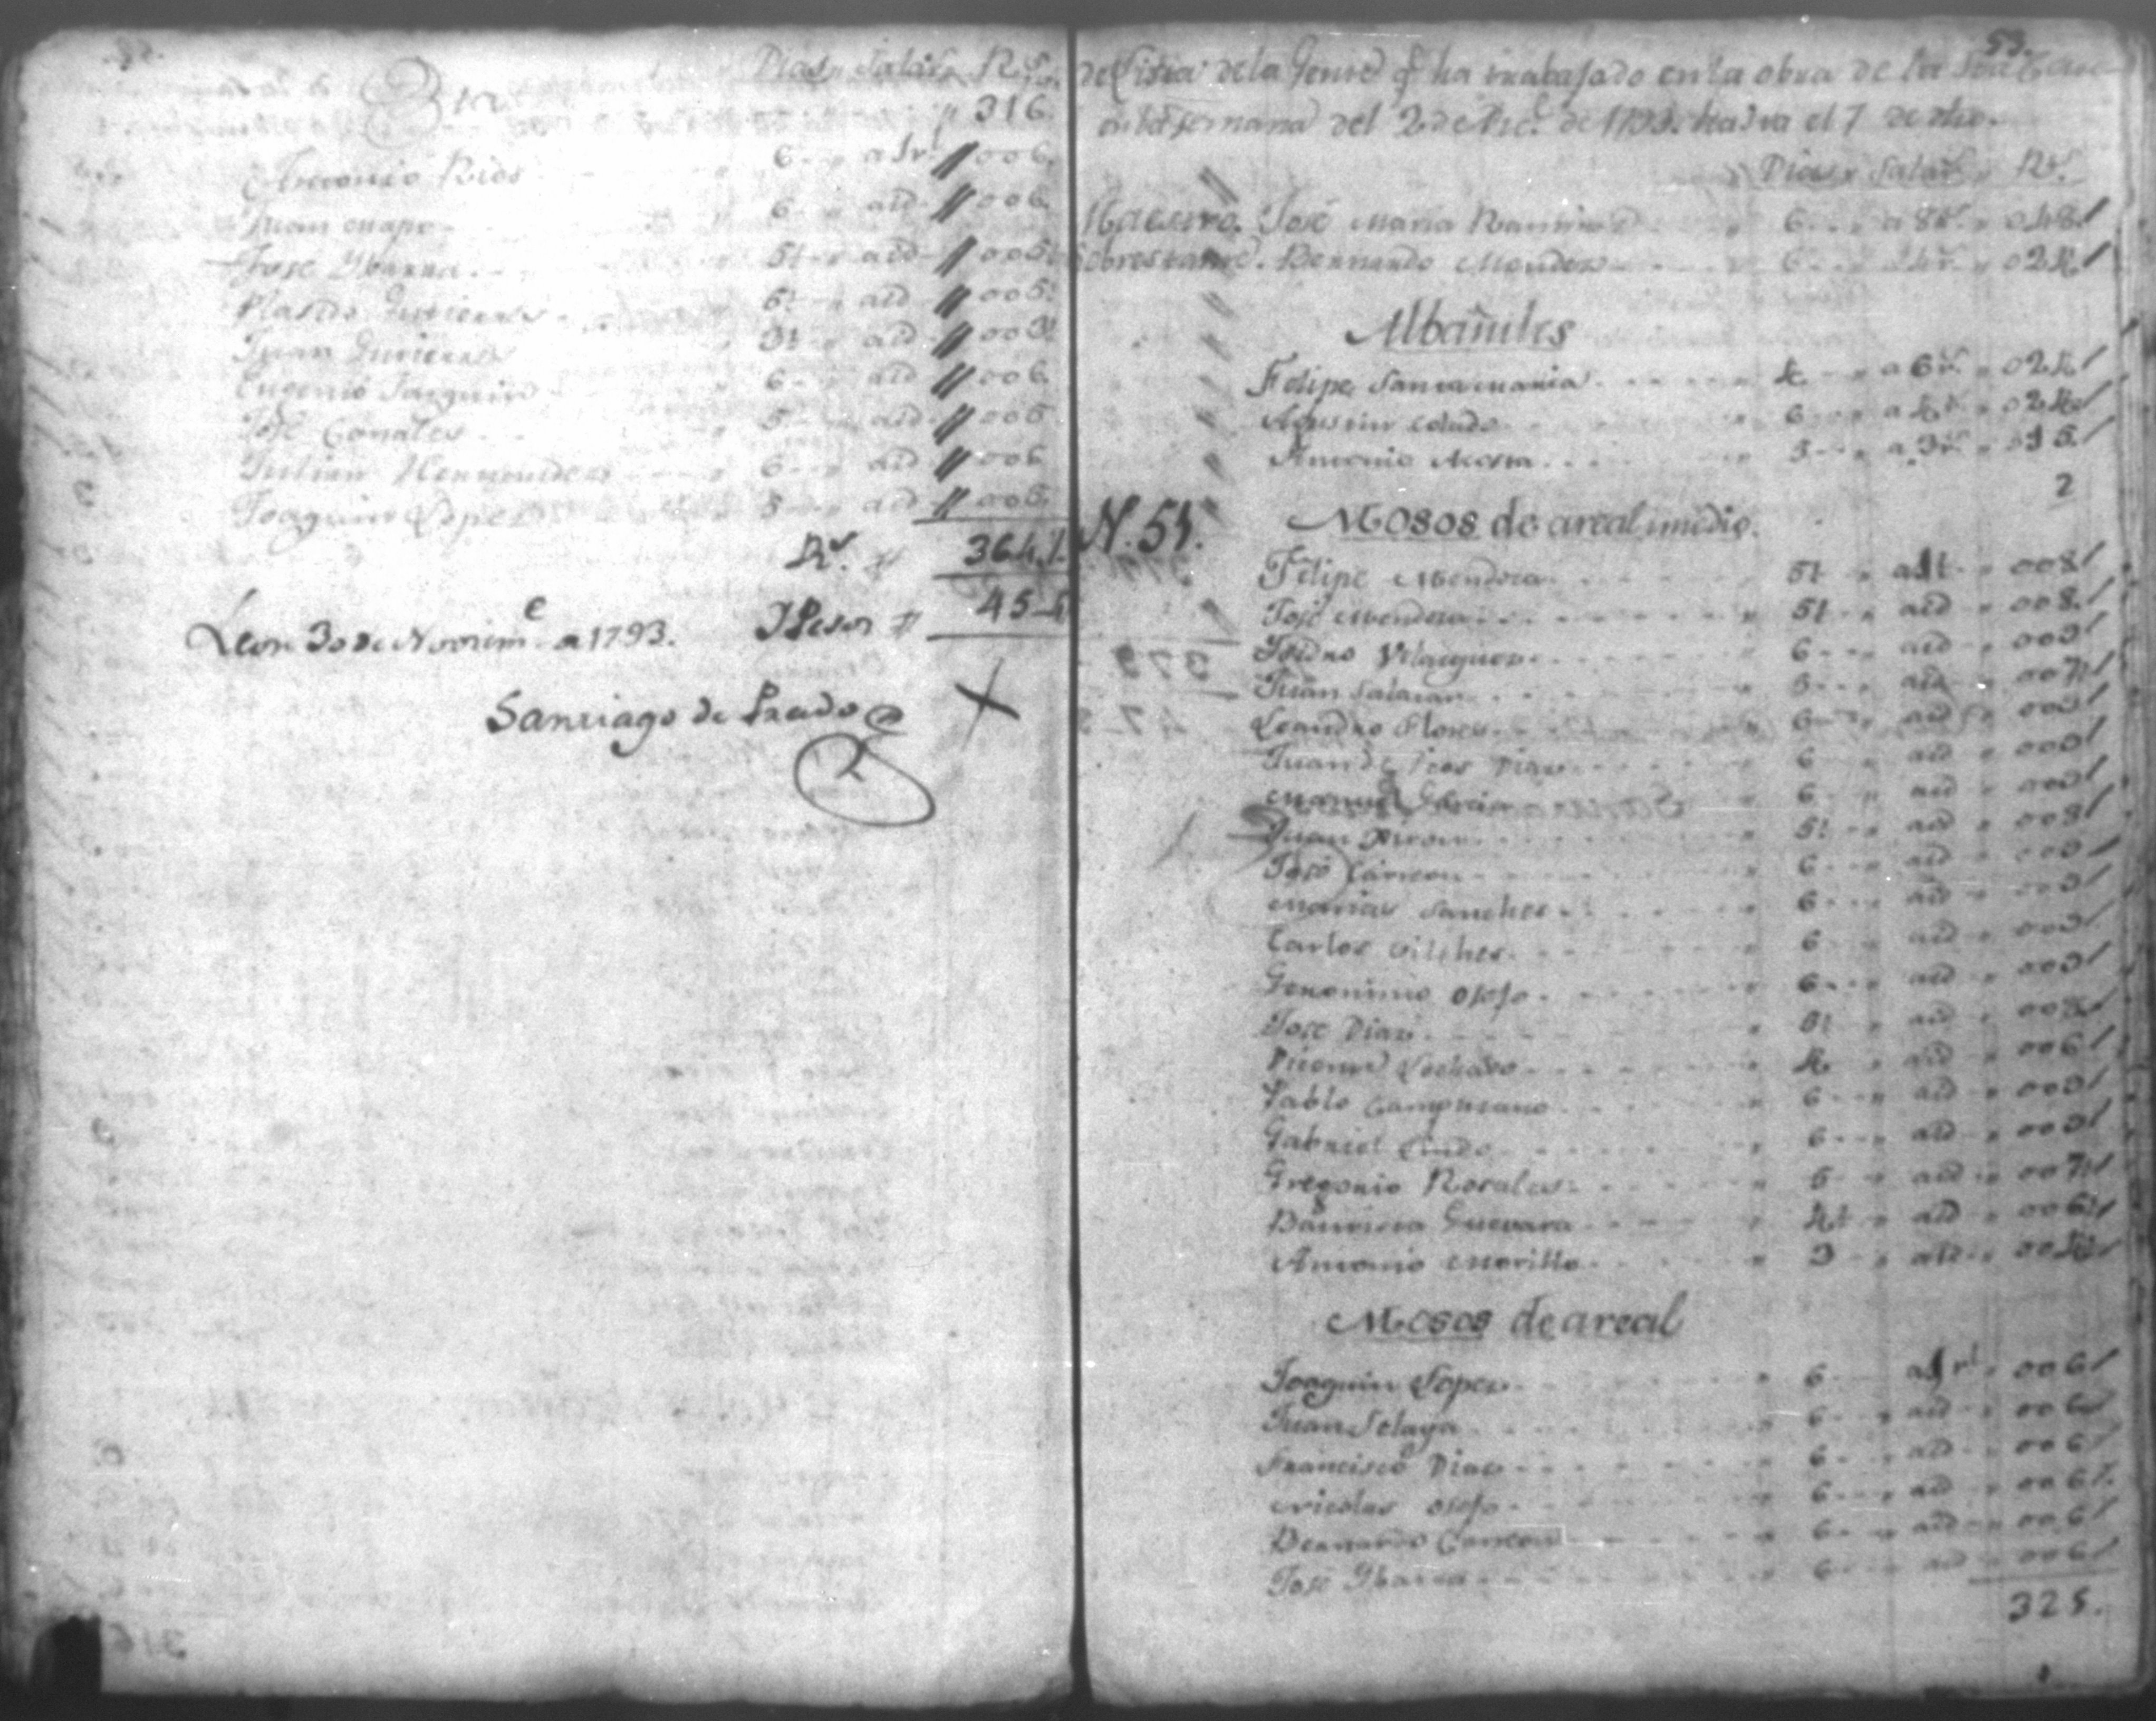 Dias, Salar. Rs.
316
Antonio Rios 6 a 1 rl 006
Juan 6 aid 006
Jose Ybarra 5t aid 005t
Plasido Gutierres 5t aid 005t
Juan Gutierres 3t aid 003t
Eugenio 6 aid 006
José Gonales 5 aid 005
Julian Hernandes 6 aid 006
Joaquin Lopes 5 aid 005
Rs. 364.t
Pesos 45-4
Leon 30 de Novieme a 1793.
Santiago de Prado
53.
Lista de la Jente q ha trabajado en la obra de la
en la semana del 2 de Dice de 1793. hasta el 7 de dho.
Dias, Salar. Rs.
Maestro. José Maria Ramires 6 a 8rs 048
Sobrestante. Bernardo Mendes 6 a 4rs 024
Albañiles
Felipe Santamaria 4 a 6rs 024
Agustin 6 a 4rs 024
Antonio Acosta 5 a 3rs 015
2
N. 51.
Mosos de areal imedio.
Felipe Mendoza 5t a 1t 008
José Mendoza 5t aid 008
Ysidro Velasques 6 aid 009
Juan Salazar 5 aid 007t
Leandro Flores 6 aid 009
Juan de Dios Dias 6 aid 009
Manuel Garcia 6 aid 009
Juan 5t aid 008
José Carreon 6 aid 009
Matias Sanches 6 aid 009
Carlos Vilches 6 aid 009
Geronimo Osojo 6 aid 009
Jose Dias 5t aid 008
Vicente 4 aid 006
Pablo Campusano 6 aid 009
Gabriel 6 aid 009
Gregorio Rosales 5 aid 007t
Bautista Guevara 4t aid 006t
Antonio Morillo 3 aid 004t
Mosos de areal
Joaquin Lopes 6 a 1 rl 006
Juan Selaya 6 aid 006
Francisco Dias 6 aid 006
Nicolas Osojo 6 aid 006
Bernardo Carreon 6 aid 006
José Ybarra 6 aid 006
325.